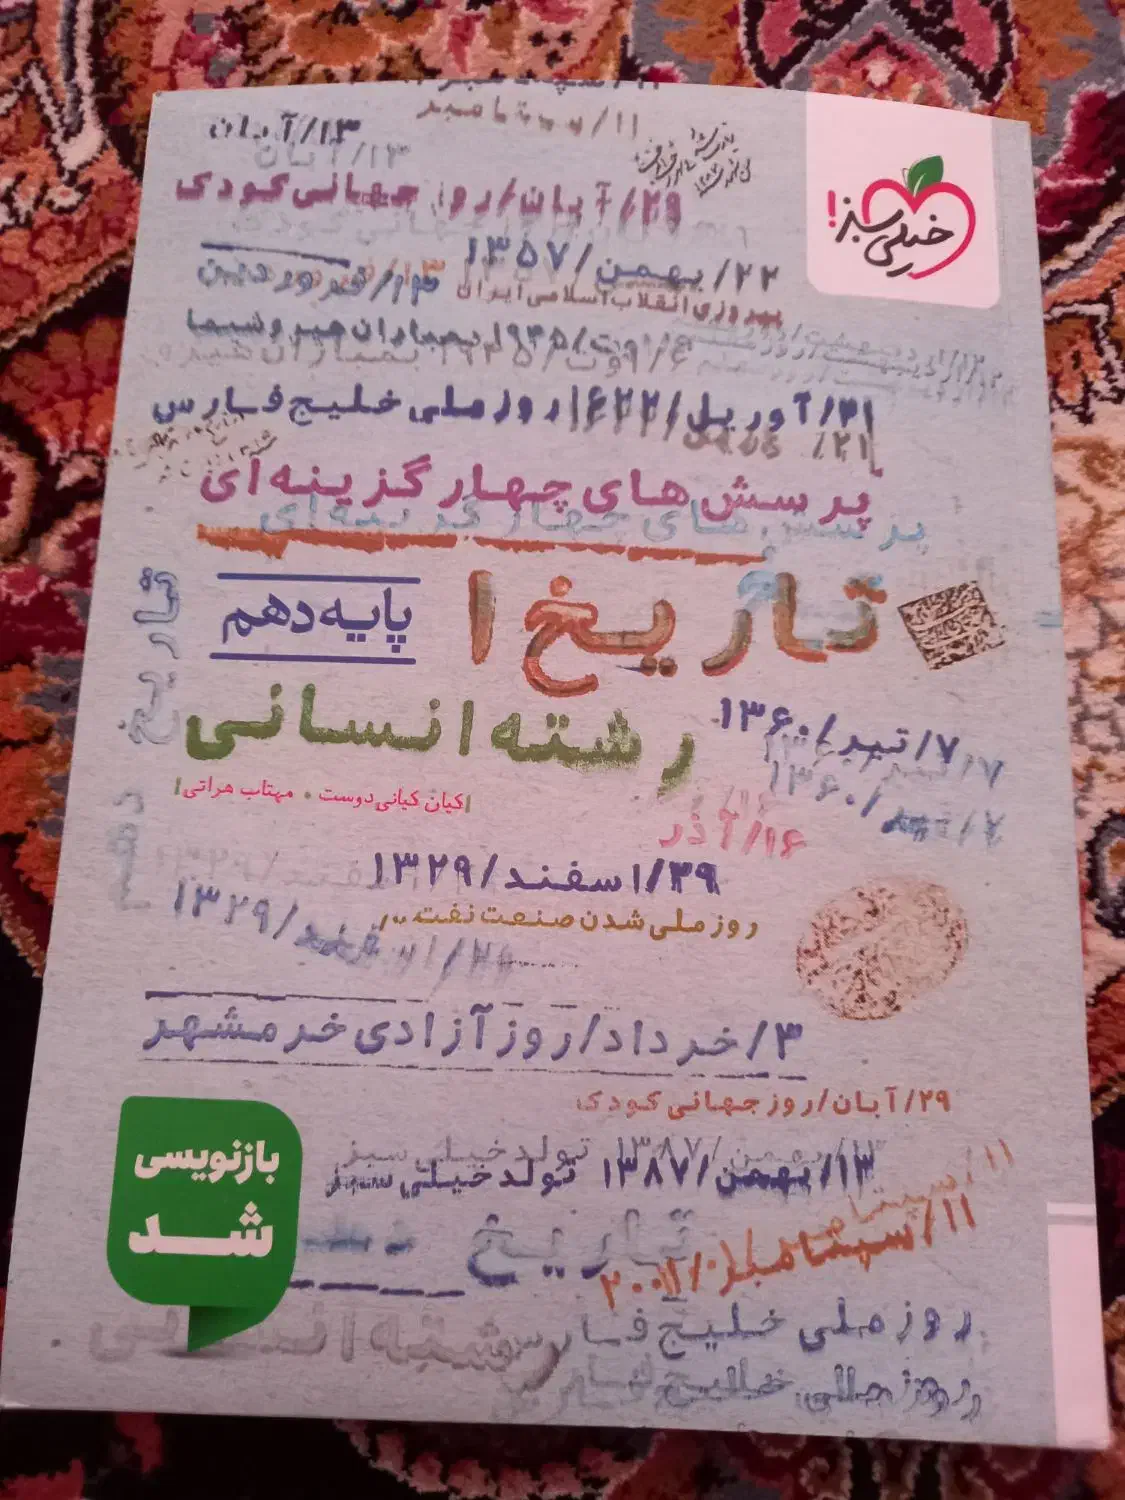 ۱۱/سپتامبر
۱۳/آبان
۱۳/آبان
خیلی سبز!
۲۹/آبان/روز جهانی کودک
۲۲/بهمن/۱۳۵۷
۱۳/فروردین
پیروزی انقلاب اسلامی ایران
۶/اوت/۱۹۴۵ بمباران هیروشیما
۲۱/آوریل/۱۶۲۲/روز ملی خلیج فارس
پرسش‌های چهارگزینه‌ای
پرسش‌های چهارگزینه‌ای
تاریخ ۱
پایه دهم
تاریخ دهم
رشته انسانی
۷/تیر/۱۳۶۰
۷/تیر/۱۳۶۰
کیان کیانی‌دوست • مهتاب هراتی
۱۶/آذر
۲۹/اسفند/۱۳۲۹
روز ملی شدن صنعت نفت
۲۹/اسفند/۱۳۲۹
۳/خرداد/روز آزادی خرمشهر
۲۹/آبان/روز جهانی کودک
۱۳/بهمن/۱۳۸۷ تولد خیلی سبز
۱۳/بهمن/۱۳۸۷ تولد خیلی سبز
بازنویسی
شد
تاریخ
۱۱/سپتامبر/۲۰۰۱
روز ملی خلیج فارس
روز ملی خلیج فارس